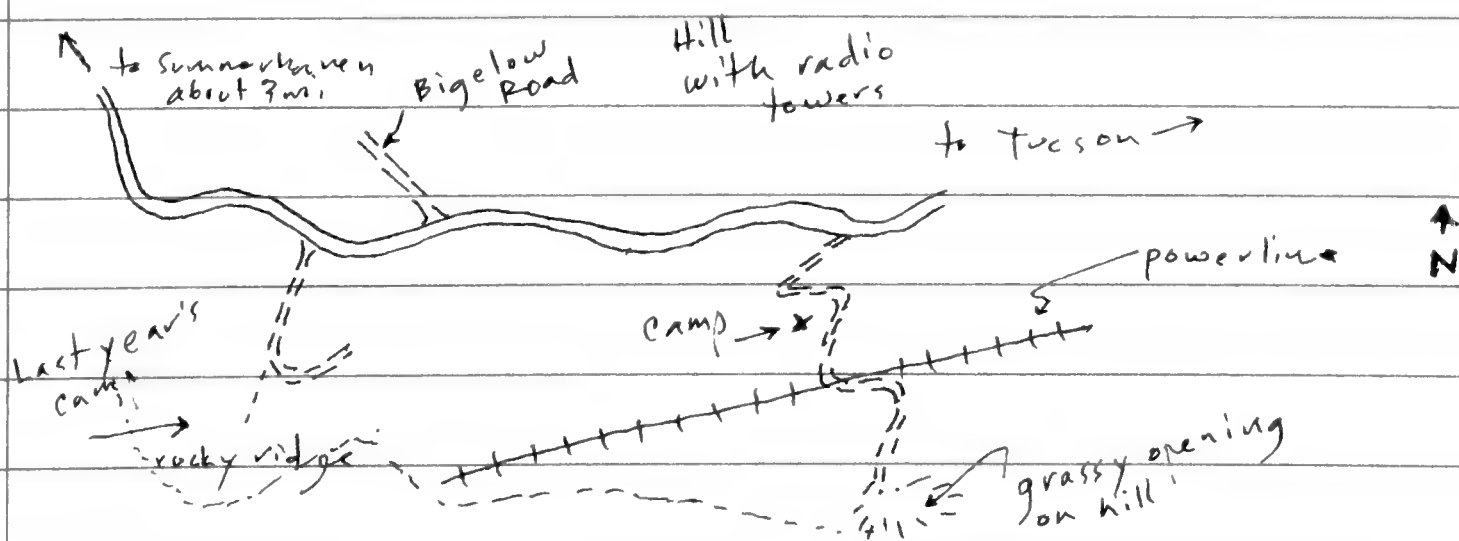 to Summerhaven
about 3 mi.
Bigelow
Road
Hill
with radio
towers
to Tucson
powerline
N
camp
Last year's
camp
rocky ridge
grassy opening
on hill